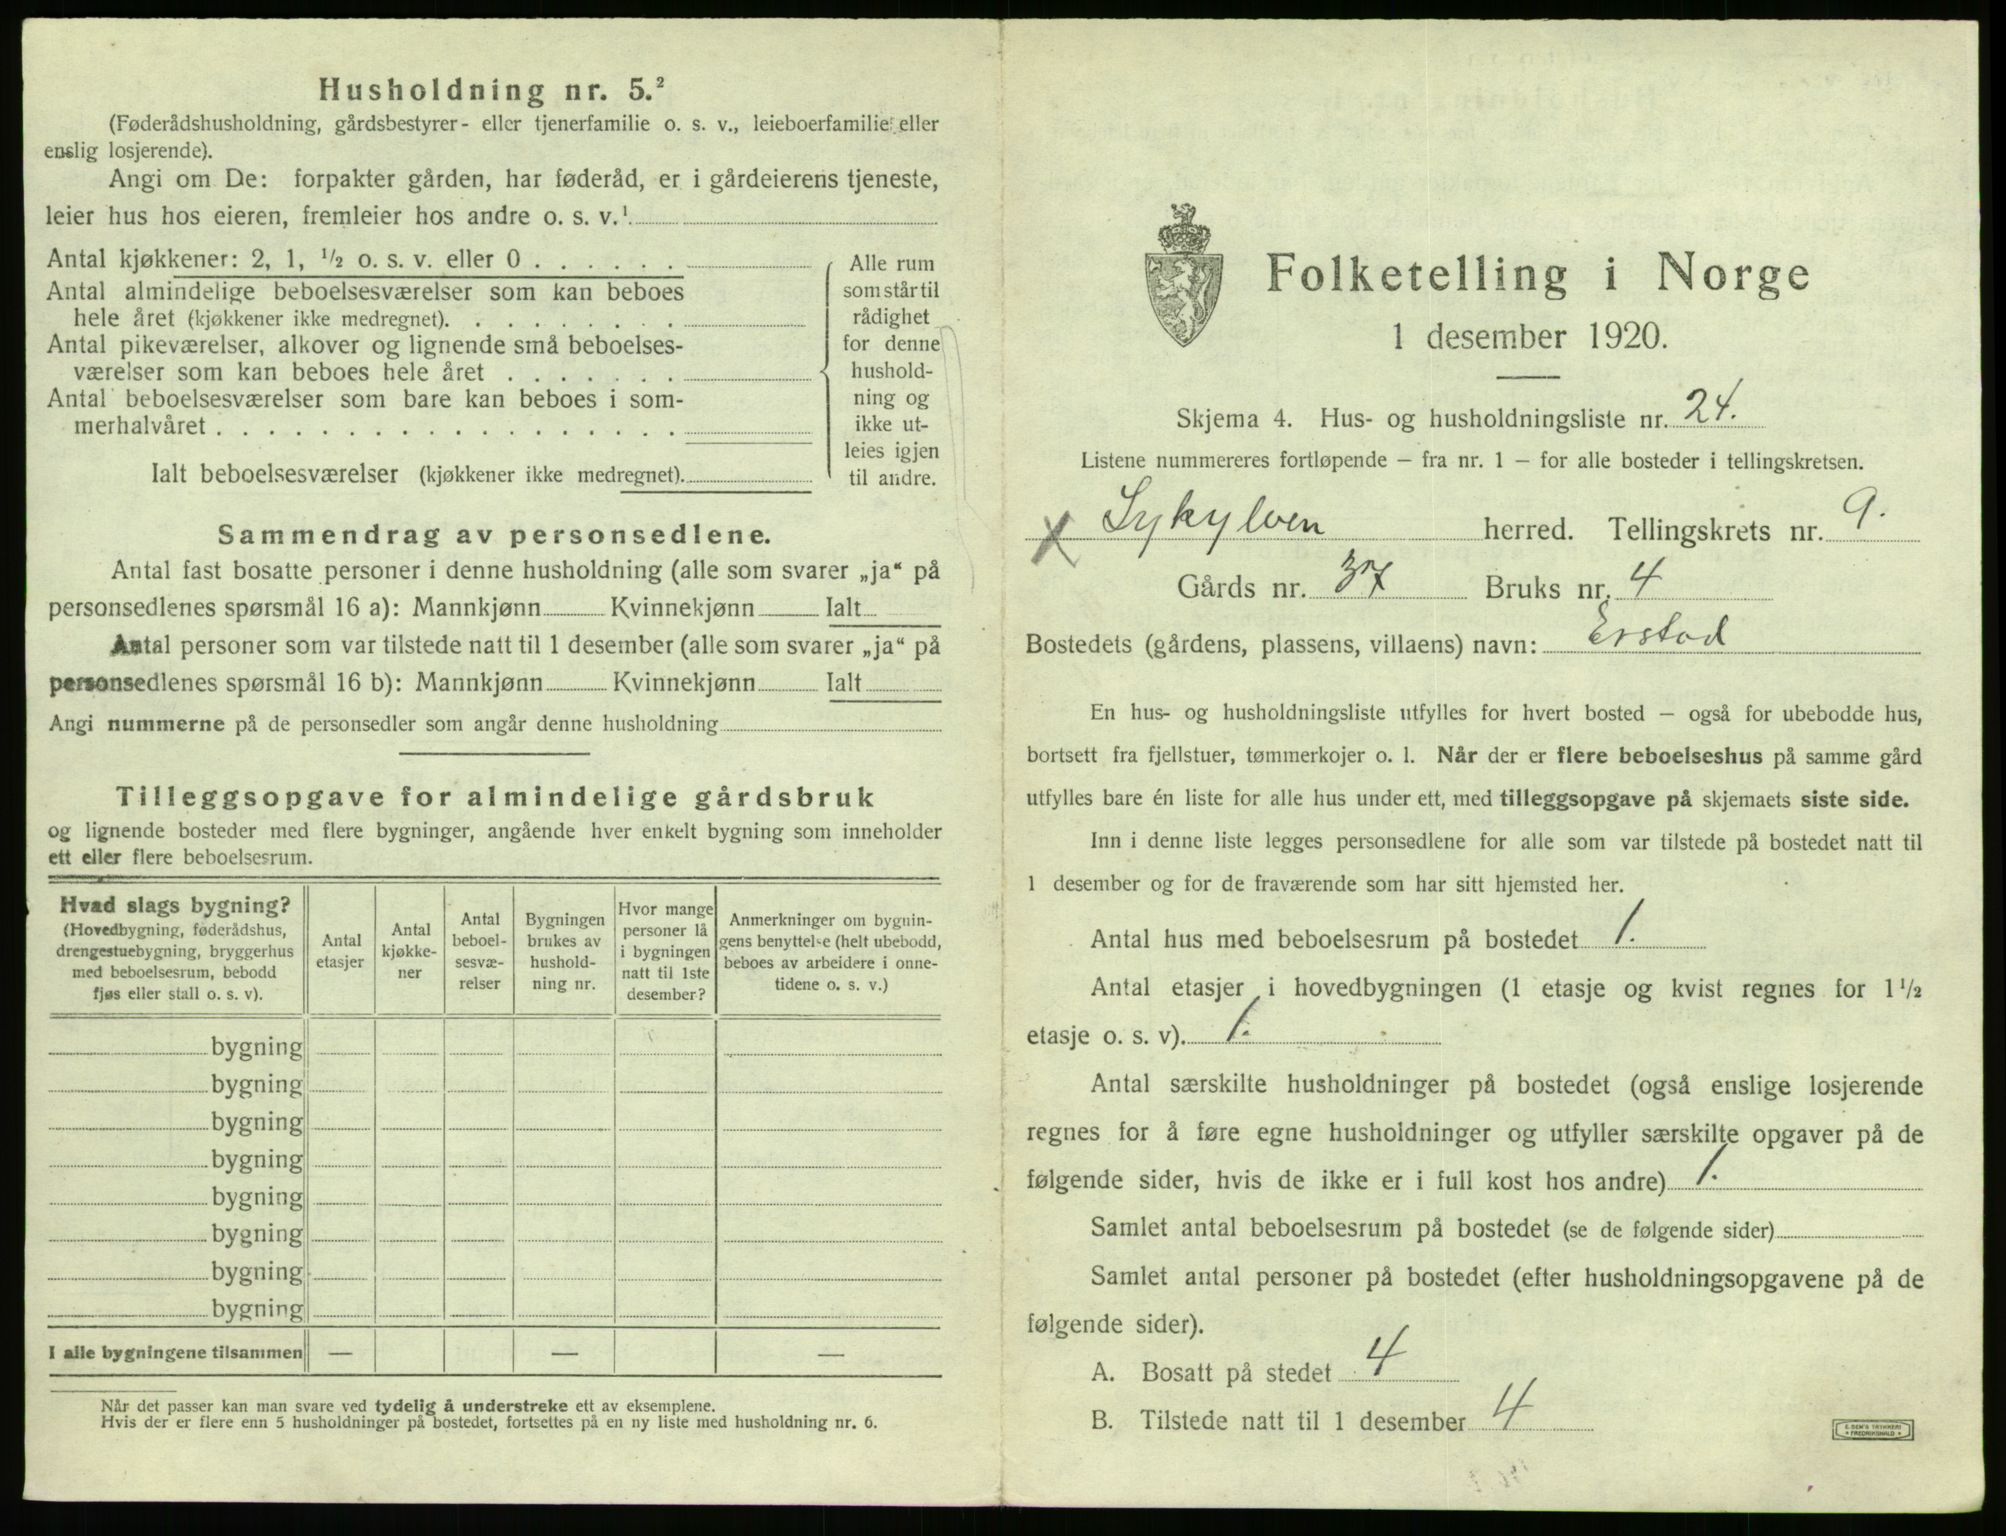 Husholdning nr. 5.²
(Føderådshusholdning, gårdsbestyrer- eller tjenerfamilie o. s. v., leieboerfamilie eller
enslig losjerende).
Angi om De: forpakter gården, har føderåd, er i gårdeierens tjeneste,
leier hus hos eieren, fremleier hos andre o. s. v.¹
Antal kjøkkener: 2, 1, ½ o. s. v. eller 0 . . . . . .
Antal almindelige beboelsesværelser som kan beboes
hele året (kjøkkener ikke medregnet). . . . . . . . .
Antal pikeværelser, alkover og lignende små beboelses-
værelser som kan beboes hele året . . . . . . .
Antal beboelsesværelser som bare kan beboes i som-
merhalvåret . . . . . . . . . . . . . . . . . .
Ialt beboelsesværelser (kjøkkener ikke medregnet).
Alle rum
som står til
rådighet
for denne
hushold-
ning og
ikke ut-
leies igjen
til andre.
Sammendrag av personsedlene.
Antal fast bosatte personer i denne husholdning (alle som svarer „ja“ på
personsedlenes spørsmål 16 a): Mannkjønn Kvinnekjønn Ialt
Antal personer som var tilstede natt til 1 desember (alle som svarer „ja“ på
personsedlenes spørsmål 16 b): Mannkjønn Kvinnekjønn Ialt
Angi nummerne på de personsedler som angår denne husholdning
Tilleggsopgave for almindelige gårdsbruk
og lignende bosteder med flere bygninger, angående hver enkelt bygning som inneholder
ett eller flere beboelsesrum.
Hvad slags bygning?
(Hovedbygning, føderådshus,
drengestuebygning, bryggerhus
med beboelsesrum, bebodd
fjøs eller stall o. s. v).
Antal
etasjer
Antal
kjøkke-
ner
Antal
beboel-
sesvæ-
relser
Bygningen
brukes av
hushold-
ning nr.
Hvor mange
personer lå
i bygningen
natt til 1ste
desember?
Anmerkninger om bygnin-
gens benyttelse (helt ubebodd,
beboes av arbeidere i onne-
tidene o. s. v.)
bygning
bygning
bygning
bygning
bygning
bygning
bygning
bygning
I alle bygningene tilsammen — — —
Når det passer kan man svare ved tydelig å understreke ett av eksemplene.
Hvis der er flere enn 5 husholdninger på bostedet, fortsettes på en ny liste med husholdning nr. 6.
Folketelling i Norge
1 desember 1920.
Skjema 4. Hus- og husholdningsliste nr. 24.
Listene nummereres fortløpende – fra nr. 1 – for alle bosteder i tellingskretsen.
X Sykylven herred. Tellingskrets nr. 9.
Gårds nr. 37 Bruks nr. 4
Bostedets (gårdens, plassens, villaens) navn: Erstad
En hus- og husholdningsliste utfylles for hvert bosted – også for ubebodde hus,
bortsett fra fjellstuer, tømmerkojer o. l. Når der er flere beboelseshus på samme gård
utfylles bare én liste for alle hus under ett, med tilleggsopgave på skjemaets siste side.
Inn i denne liste legges personsedlene for alle som var tilstede på bostedet natt til
1 desember og for de fraværende som har sitt hjemsted her.
Antal hus med beboelsesrum på bostedet 1.
Antal etasjer i hovedbygningen (1 etasje og kvist regnes for 1½
etasje o. s. v). 1.
Antal særskilte husholdninger på bostedet (også enslige losjerende
regnes for å føre egne husholdninger og utfyller særskilte opgaver på de
følgende sider, hvis de ikke er i full kost hos andre) 1.
Samlet antal beboelsesrum på bostedet (se de følgende sider)
Samlet antal personer på bostedet (efter husholdningsopgavene på de
følgende sider).
A. Bosatt på stedet 4
B. Tilstede natt til 1 desember 4
E. SEM'S TRYKKERI
FREDRIKSHALD